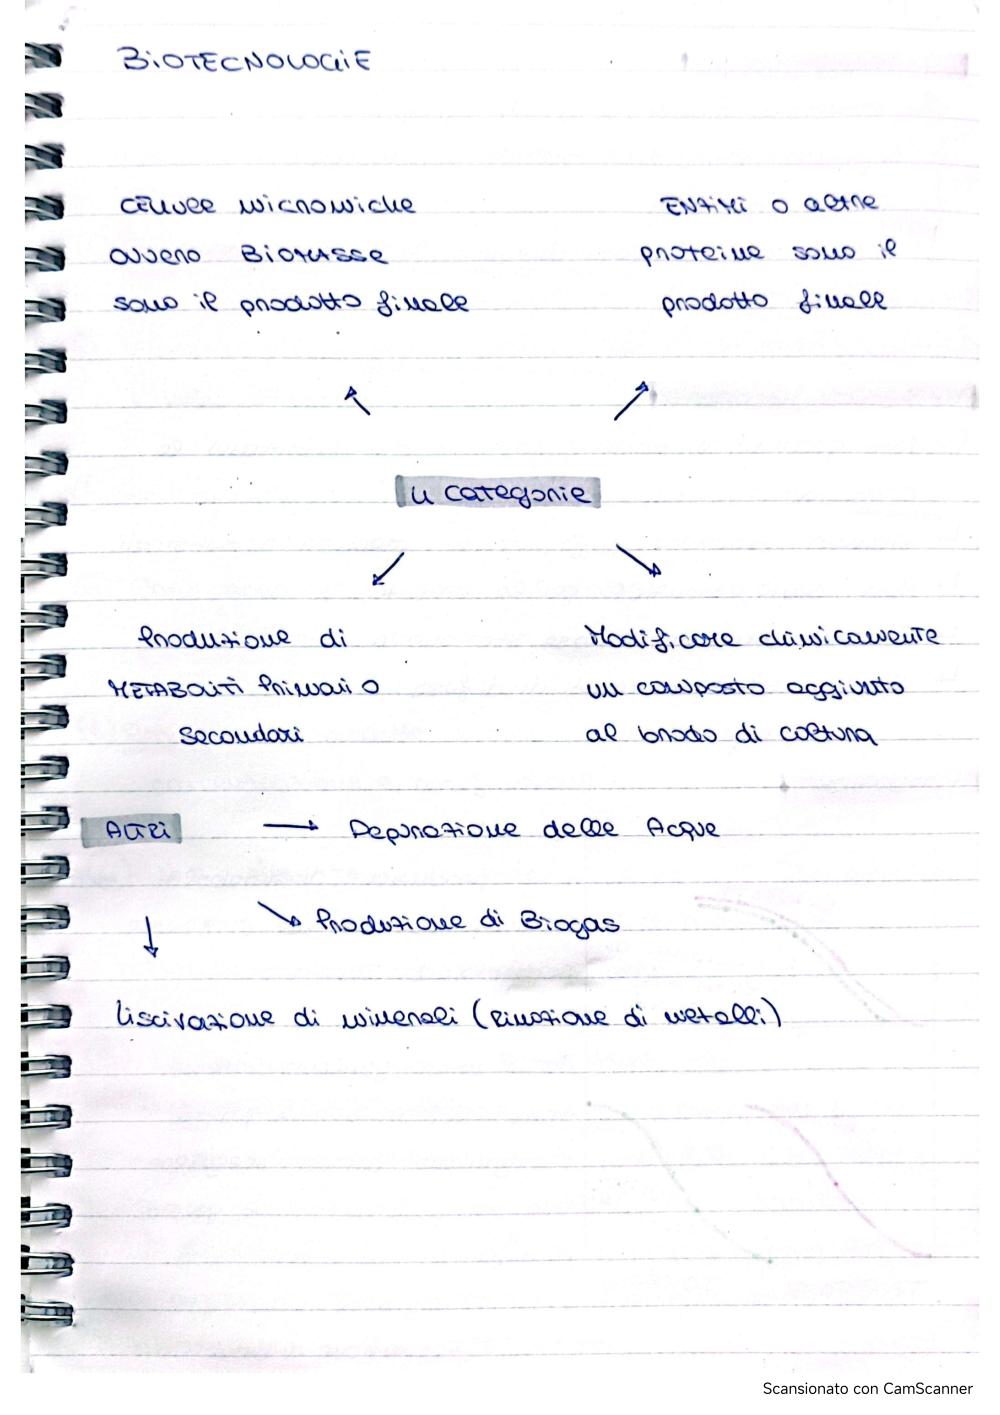 BIOTECNOLOGIE
CELLULE MICROBICHE
OVVERO BIOMASSE
sono il prodotto finale
ENZIMI O altre
proteine sono il
prodotto finale
4 categorie
Produzione di
METABOLITI Primari O
Secondari
Modificare chimicamente
un composto aggiunto
al brodo di coltura
ALTRI
Depurazione delle Acque
Produzione di Biogas
Liscivazione di minerali (Rimozione di metalli)
Scansionato con CamScanner